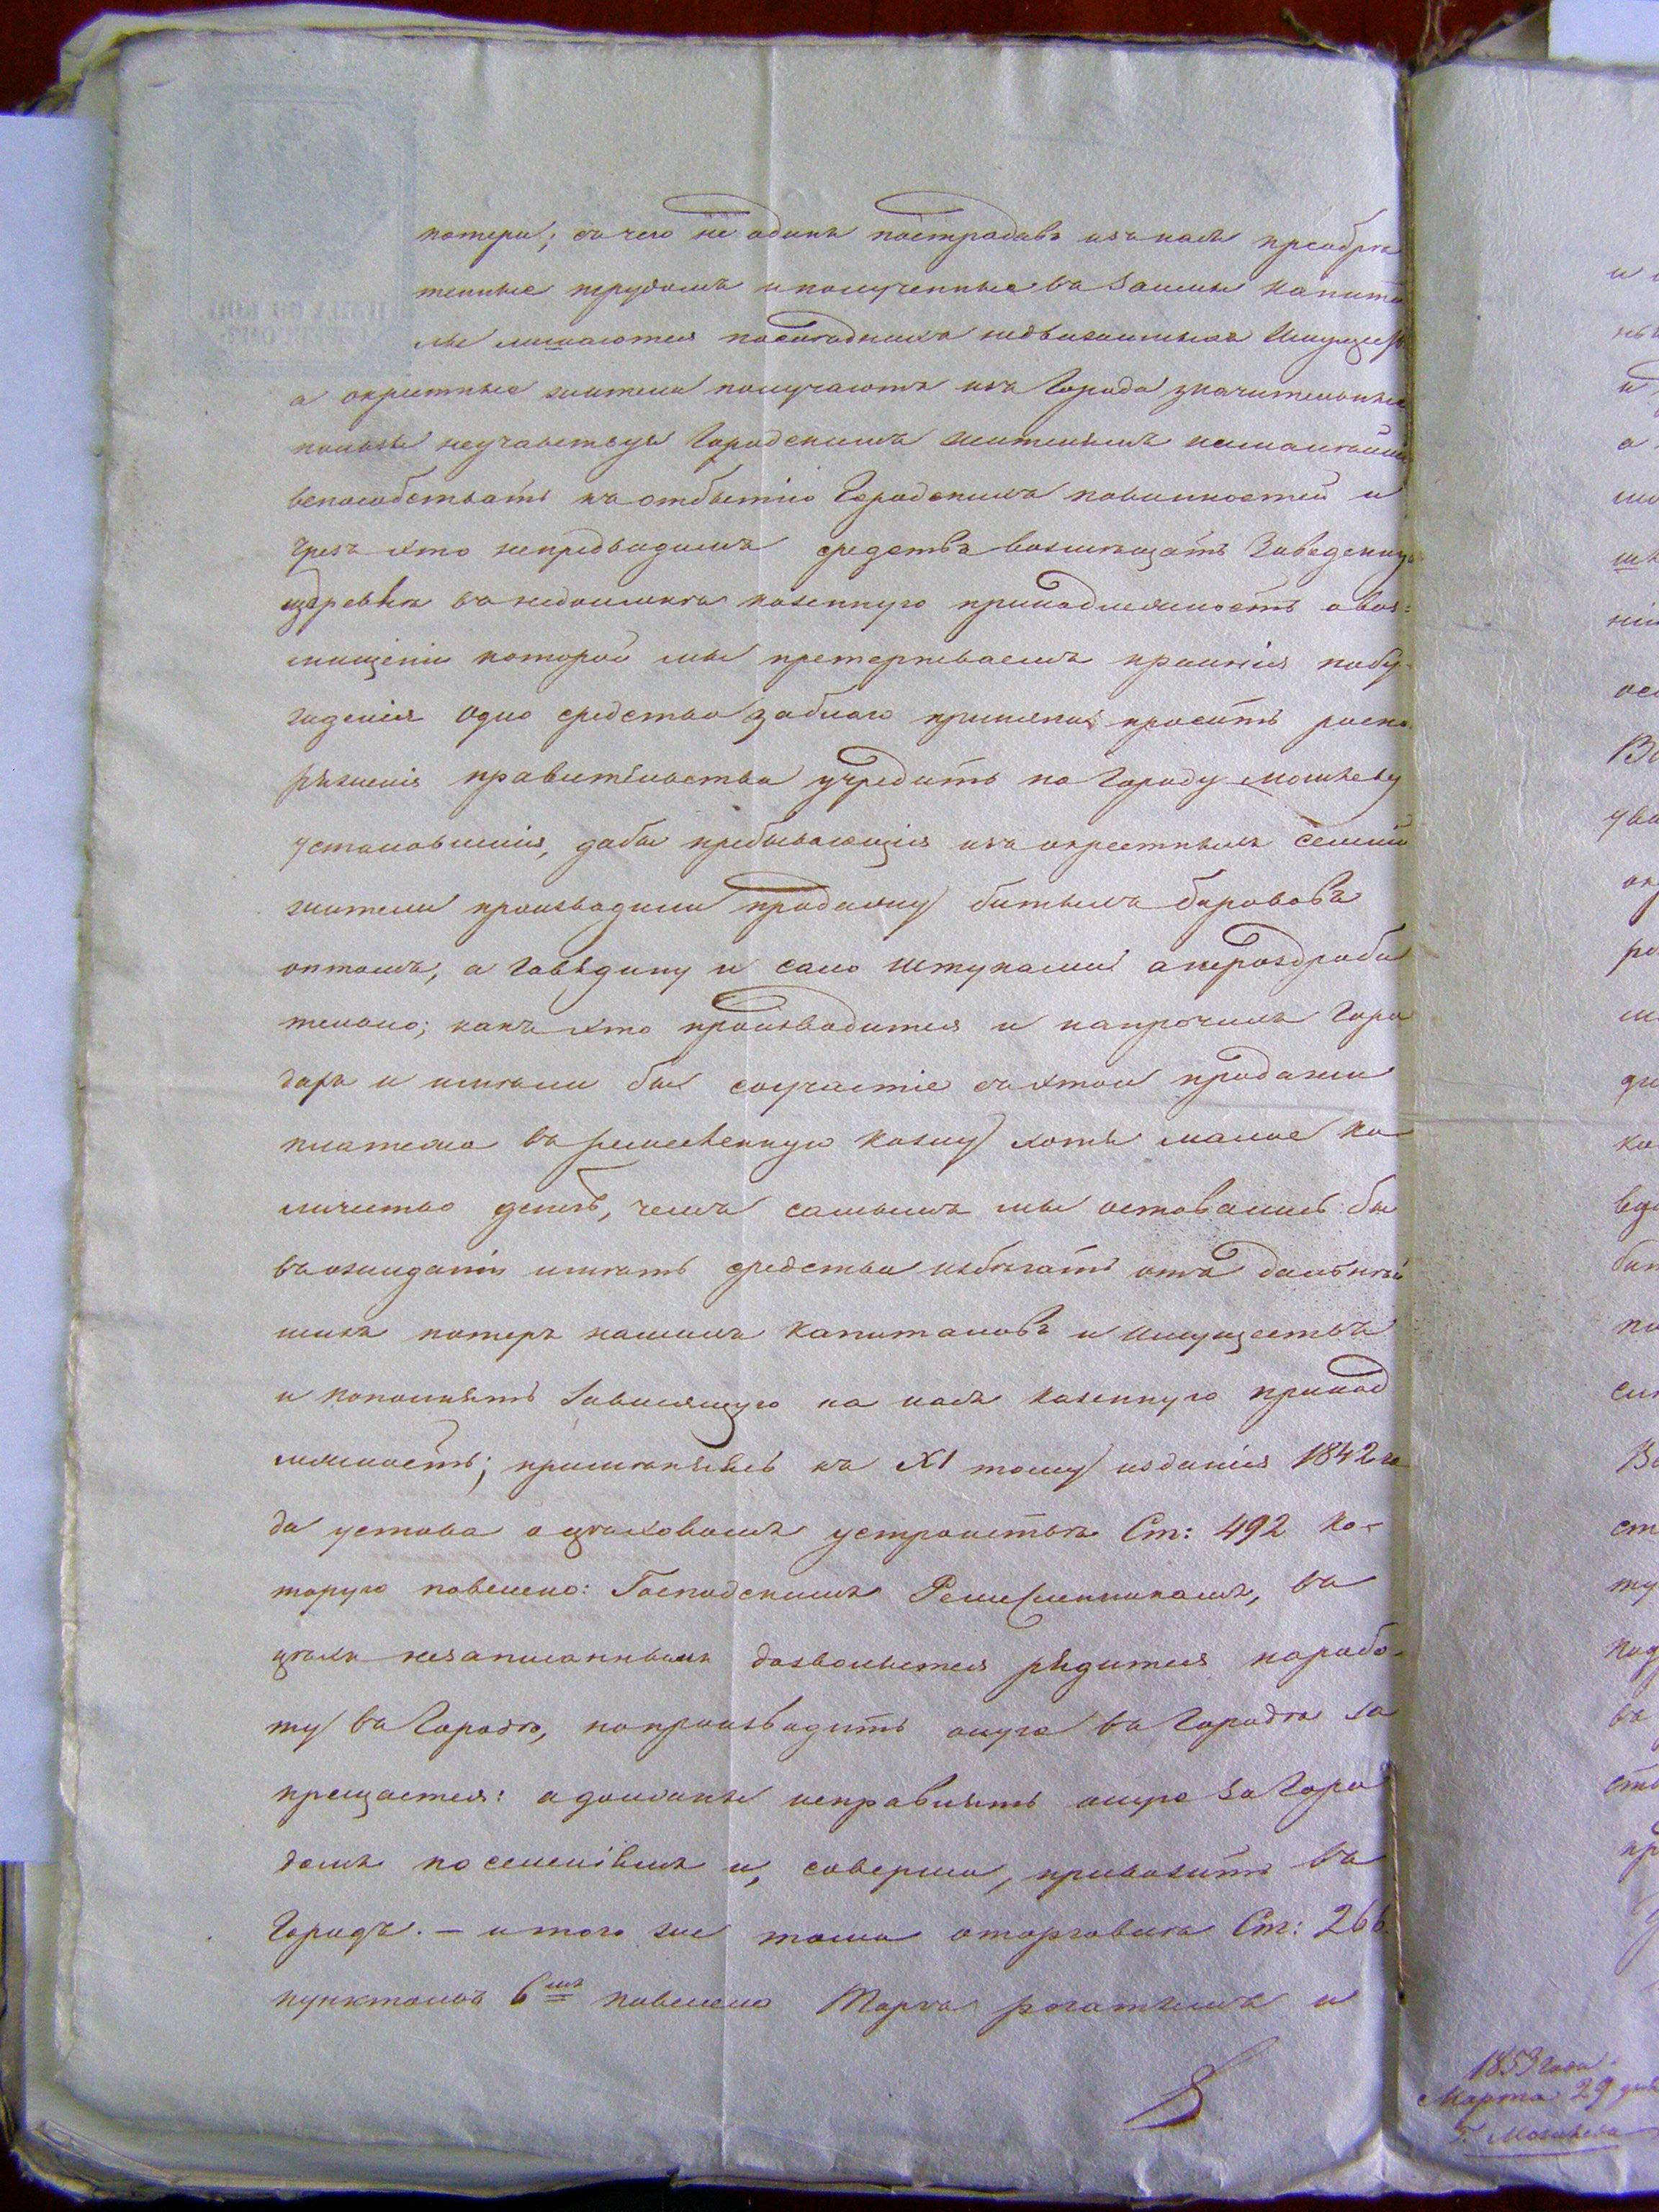 потери; съ чего не одинъ пострадавъ изъ насъ преобрѣ
тенные трудомъ и полученные въ займы капита
лы лишаются посигодникъ недвижимыхъ Имуществъ
а окрестные жители получаютъ изъ Города значительные
пользы неучавствуя Городскимъ жителямъ
вспособствать къ отбытію Городскихъ повинностей и
чрезъ это непредвидимъ средствъ возмѣщать Заведенную
издревнѣ въ недоимкѣ казенную принадлежность о воз=
мѣщеніи которой мы претерпеваемъ крайнія побу-
жденія одно средство заблаго приняли просить распо
ряженія правительства учредить по Городу Могилеву
установленія, дабы пребывающія изъ окрестныхъ селеній
жители производили продажу битыхъ борововъ
оптомъ, а говядину и сало штуками а нераздроби
тельно; какъ это производится и напрочихъ Горо
дахъ и имѣли бы соучастіе съ этой продажи
платежа въ ремесленную казну хотя малое ко
личество денегъ, чемъ самымъ мы оставались бы
въ ожиданіи имѣть средства избѣгать отъ дальнѣй
шихъ потерь нашихъ капиталовъ и имуществъ
и пополнять Зависящую на насъ казенную принад
лежность; применяясь къ XI тому изданія 1842 го
да устава о цѣховомъ устройствѣ Ст: 492 ко-
торую повелено: Господскимъ Ремесленникамъ, въ
цѣхи незаписаннымъ дозволяется рядится на рабо-
ту въ Городѣ, но производить оную въ Городѣ за
прещается: а должны исправлять оную за Горо
домъ по селеніямъ и, соверша, привозить въ
Городъ. — и того же тома о торговлѣ Ст: 266.
пунктомъ 6мъ повелено Торгъ рогатымъ и
1853 года
Марта 29 дня
Г. Могилевъ